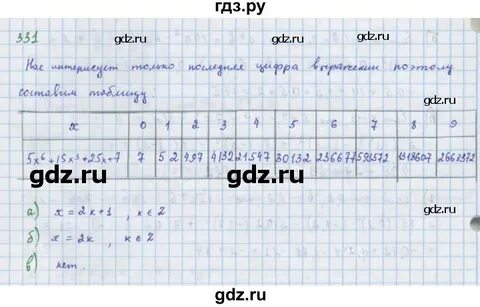 гдз.ру
331 gdz.ru gdz.ru
Нас интересует только последняя цифра выражения поэтому
составим таблицу:
gdz.ru gdz.ru
x 0 1 2 3 4 5 6 7 8 9
5x⁶+15x³+25x+7 7 52 497 4132 21547 30132 236677 593572 1318607 2662372
gdz.ru gdz.ru
а) x = 2k+1 , k ∈ Z
б) x = 2k , k ∈ Z
в) нет.
gdz.ru gdz.ru